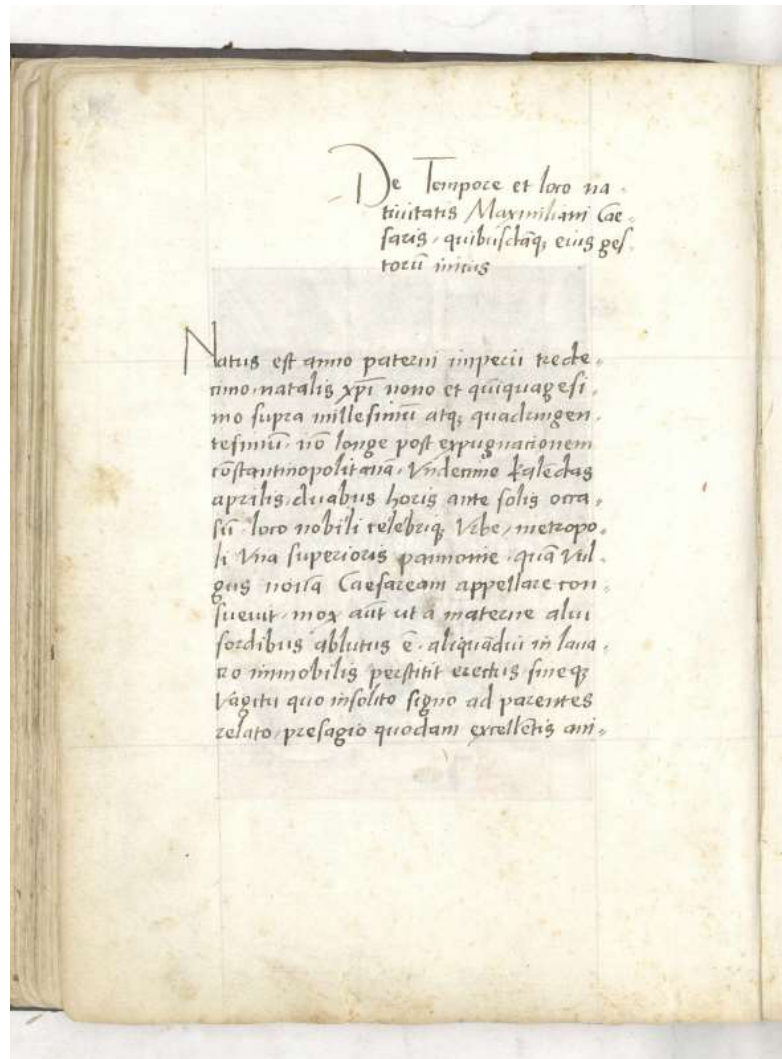 De Tempore et loco na-
tiuitatis Maximiliani Cae-
saris, quibusdāq; eius ges-
torū initiis
Natus est anno paterni imperii trede-
cimo, natalis xp̄i nono et quīquagesi-
mo supra millesimū atq; quadringen-
tesimū, nō longe post expugnacionem
cōstantinopolitanā, Vndecimo kalēdas
aprilis, duabus horis ante solis occa-
sū, loco nobili celebriq; Vrbe, metropo-
li Vna superioris pannonie, quā Vul-
gus noua Caesaream appellare con-
sueuit, mox aūt ut a materne alui
sordibus ablutus ē, aliquādiu in laua-
ro immobilis perstitit erectus sineq;
Vagitu quo insolito signo ad parentes
relato, presagio quodam excellētis ani-